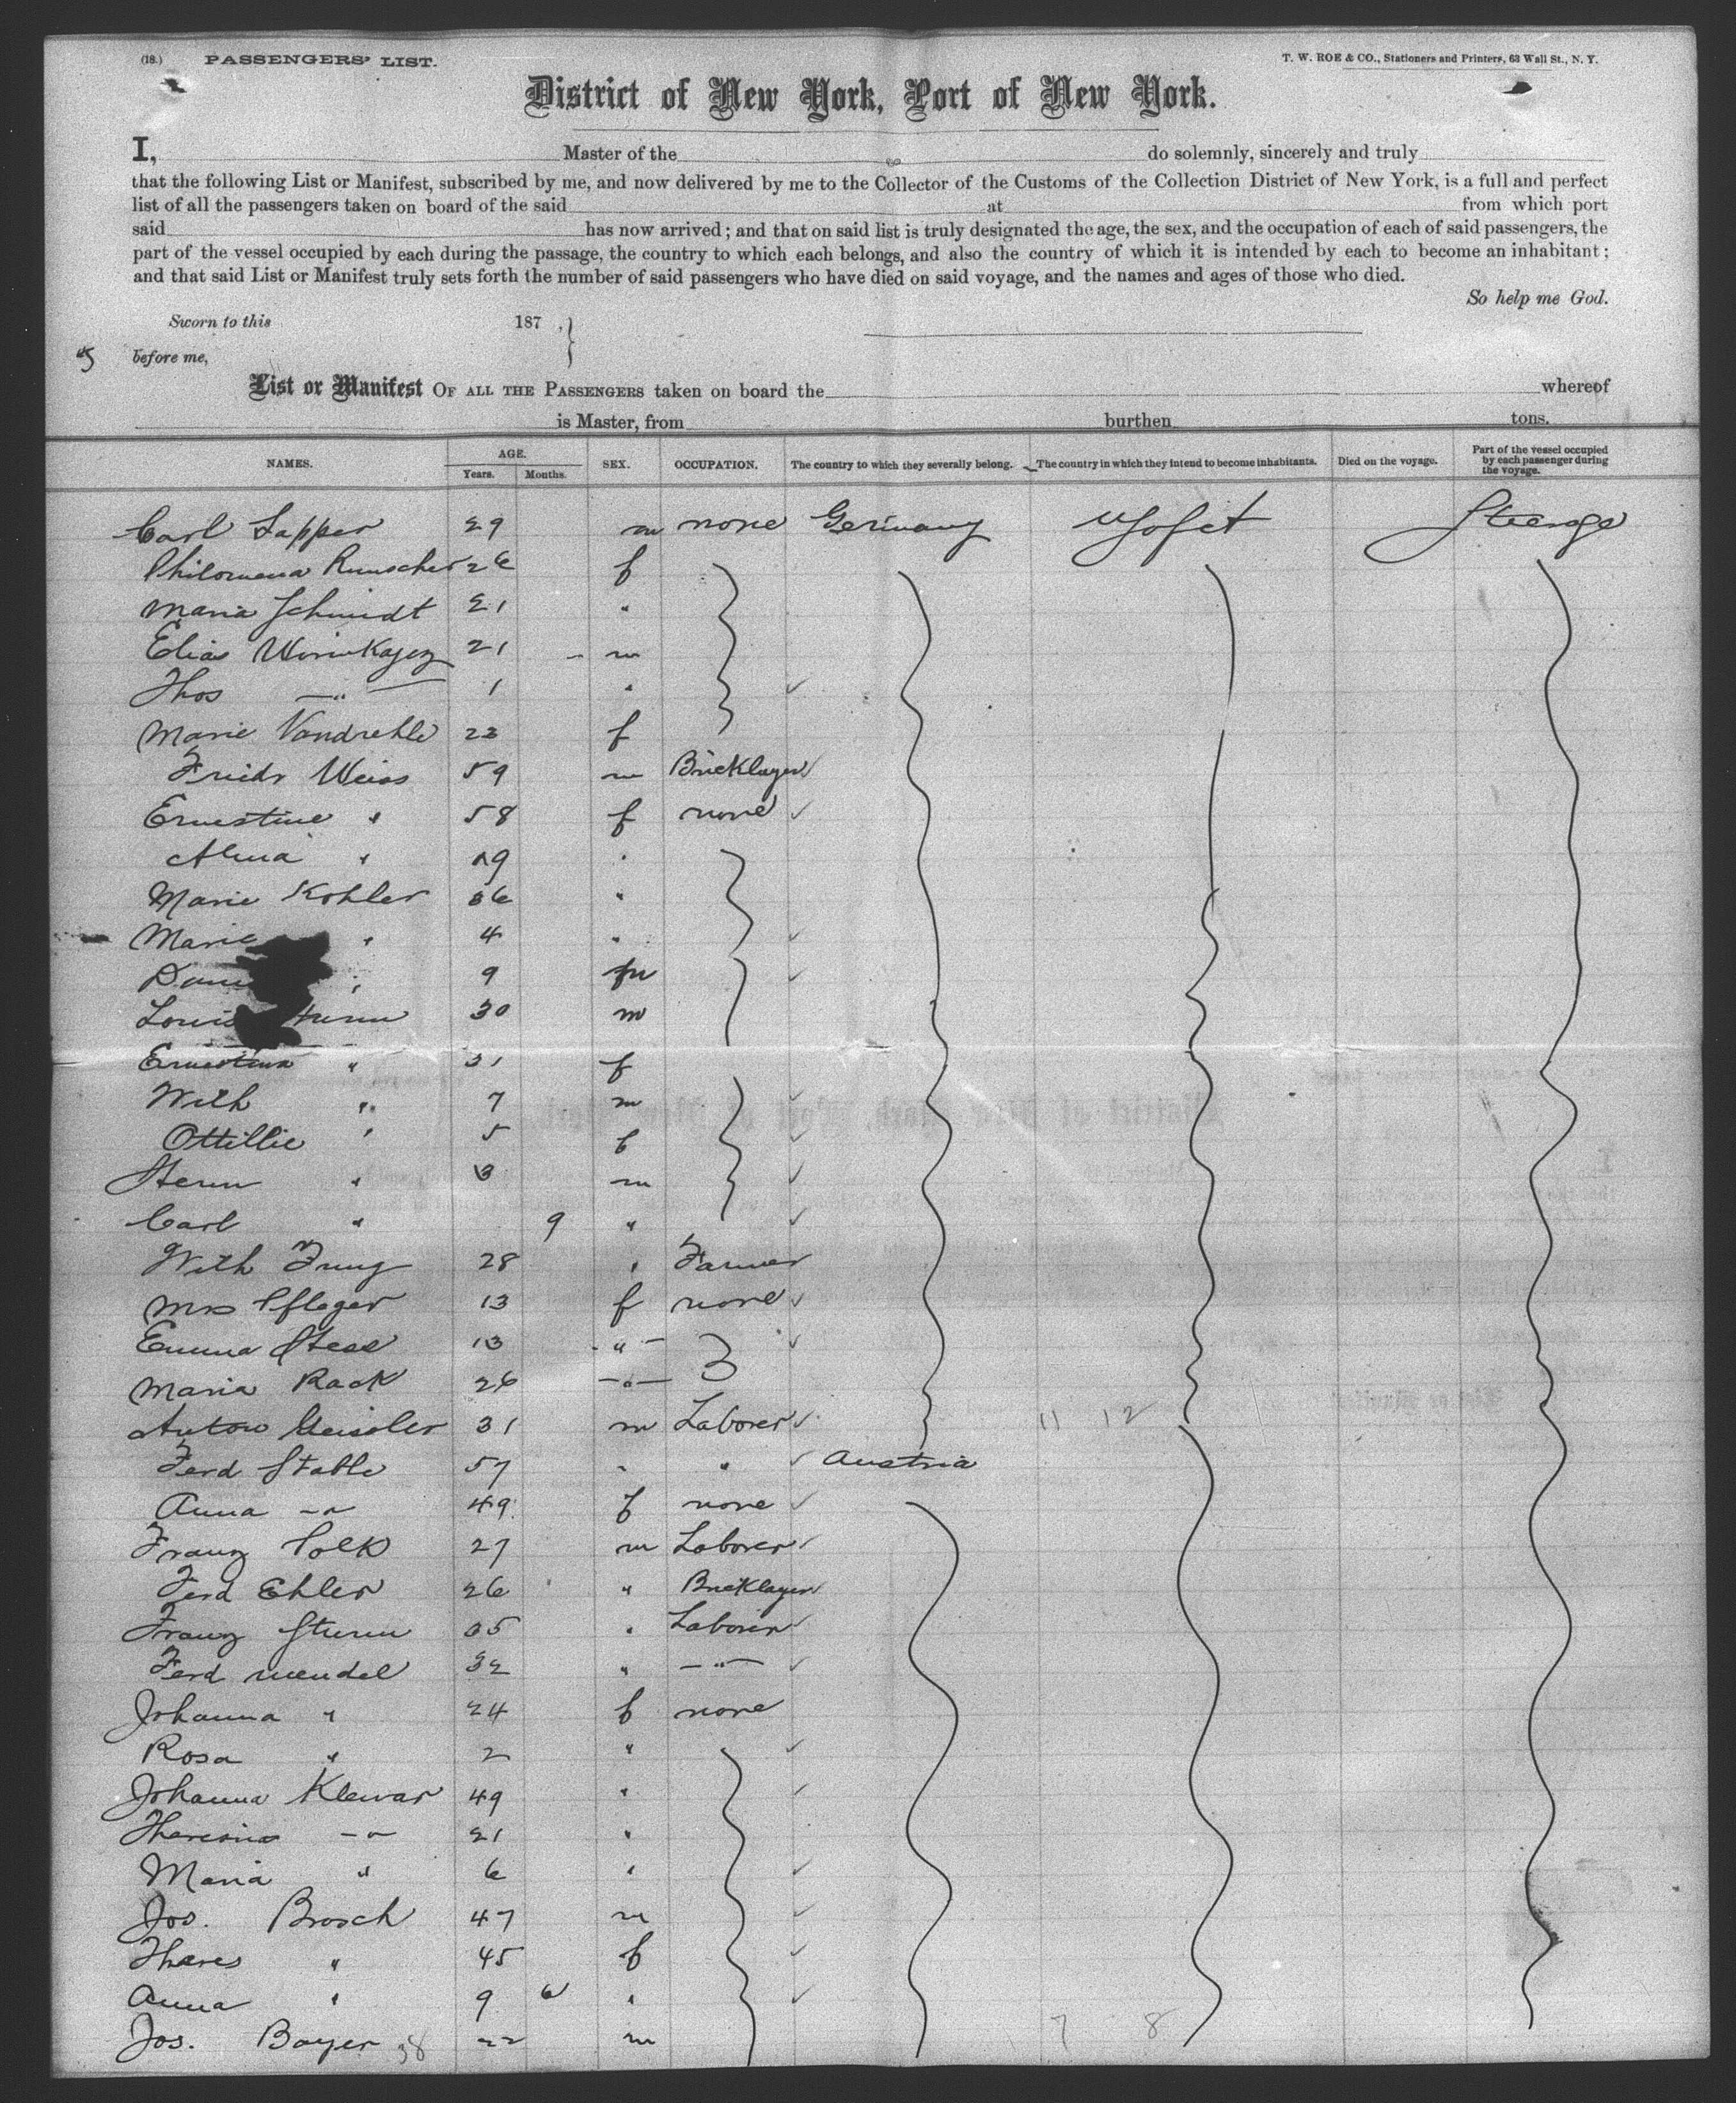 (18.) PASSENGERS' LIST. T. W. ROE & CO., Stationers and Printers, 63 Wall St., N. Y.
District of New York, Port of New York.
I, Master of the do solemnly, sincerely and truly
that the following List or Manifest, subscribed by me, and now delivered by me to the Collector of the Customs of the Collection District of New York, is a full and perfect
list of all the passengers taken on board of the said at from which port
said has now arrived; and that on said list is truly designated the age, the sex, and the occupation of each of said passengers, the
part of the vessel occupied by each during the passage, the country to which each belongs, and also the country of which it is intended by each to become an inhabitant;
and that said List or Manifest truly sets forth the number of said passengers who have died on said voyage, and the names and ages of those who died.
So help me God.
Sworn to this 187 ,
before me,
List or Manifest OF ALL THE PASSENGERS taken on board the whereof
is Master, from burthen tons.
NAMES. AGE. Years. Months. SEX. OCCUPATION. The country to which they severally belong. The country in which they intend to become inhabitants. Died on the voyage. Part of the vessel occupied by each passenger during the voyage.
Carl Sapper 29 m none Germany Steerage
Philomena 26 f
Maria Schmidt 21 "
Elias 21 m
Thos " 1 "
Marie Vandrehle 23 f
Friedr Weiss 59 m Bricklayer
Ernestine " 58 f none
Alma " 19 "
Marie Kohler 36 "
Marie " 4 "
" 9 m
Louis 30 m
Ernestina " 31 f
Wilh " 7 m
Ottillie " 5 f
Herm " 3 m
Carl " 9 "
Wilh 28 " Farmer
Mrs Pfleger 13 f none
Emma 13 "
Maria Rack 26 "
Anton Geissler 31 m Laborer
Ferd Stable 57 " " Austria
Anna " 49 f none
Franz Polk 27 m Laborer
Ferd Ehler 26 " Bricklayer
Franz Sturm 35 " Laborer
Ferd Mendel 32 " "
Johanna " 24 f none
Rosa " 2 "
Johanna Klewar 49 "
Theresia " 21 "
Maria " 6 "
Jos. Brosch 47 m
Theres " 45 f
Anna " 9 6 "
Jos. Bayer 38 22 m 7 8